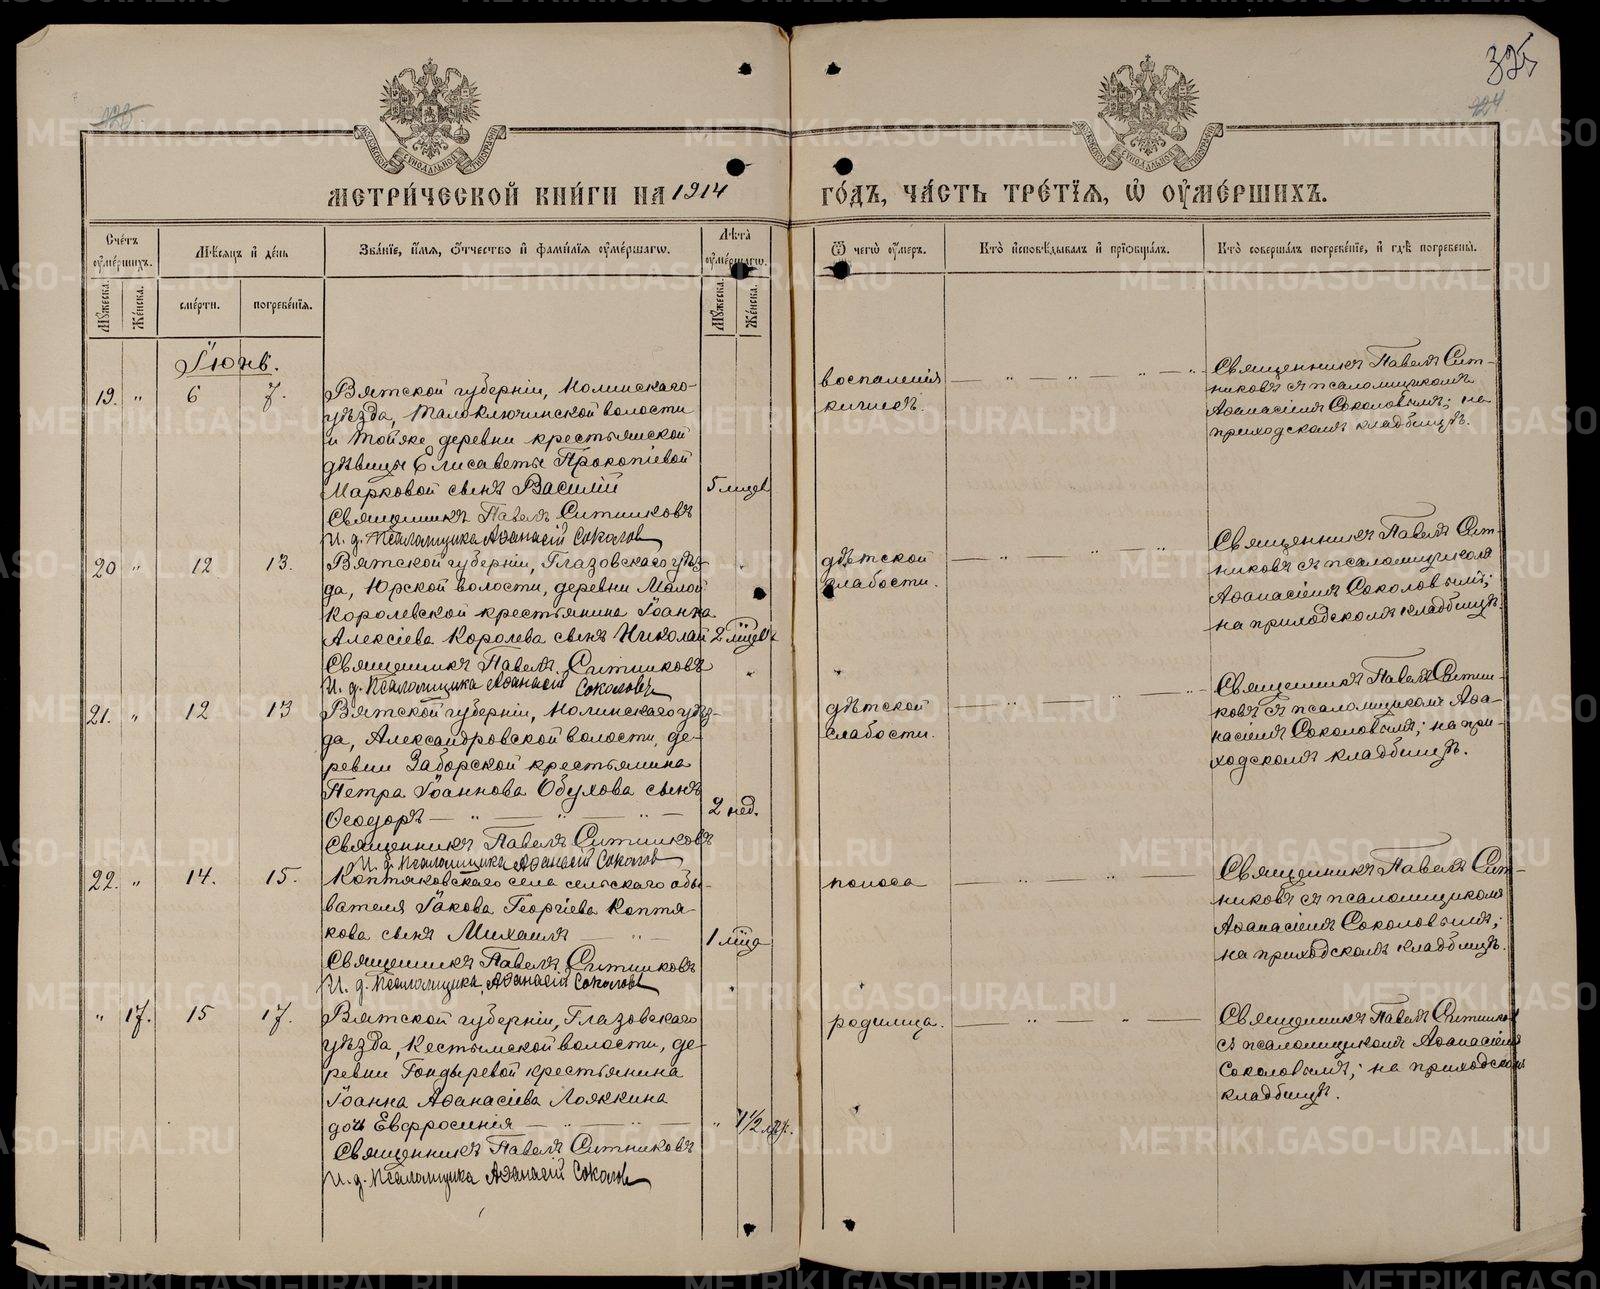 325
123
124
МОСКОВСКОЙ СѴНОДАЛЬНОЙ ТИПОГРАФІИ
МОСКОВСКОЙ СѴНОДАЛЬНОЙ ТИПОГРАФІИ
МЕТРИ́ЧЕСКОЙ КНИ́ГИ НА 1914 ГО́ДЪ, ЧА́СТЬ ТРЕ́ТЇѦ, Ѡ҆ ОУ҆МЕ́РШИХЪ.
Сче́тъ оу҆ме́ршихъ.
Мѣ́сѧцъ и҆ де́нь
Зва́нїе, и҆́мѧ, ѻ҆́тчество и҆ фами́лїѧ оу҆ме́ршагѡ.
Лѣ́та оу҆ме́ршагѡ.
Ѿ чегѡ̀ оу҆́меръ.
Кто̀ и҆сповѣ́дывалъ и҆ прїѡбща́лъ.
Кто̀ соверша́лъ погребе́нїе, и҆ гдѣ̀ погребены̀.
Мꙋ́жеска.
Же́нска.
сме́рти.
погребе́нїѧ.
Мꙋ́жеска.
Же́нска.
Іюнь.
19. " 6 7.
Вятской губерніи, Нолинскаго
уѣзда, Малоключинской волости
и Тойяке деревни крестьянской
дѣвицы Елисаветы Прокопіевой
Марковой сынъ Василій
5 мцев
Священникъ Павелъ Ситниковъ
И. д. Псаломщика Аѳанасій Соколов
воспаленія
кишекъ.
Священникъ Павелъ Сит-
никовъ съ псаломщикомъ
Аѳанасіемъ Соколовымъ; на
приходскомъ кладбищѣ.
20 " 12. 13.
Вятской губерніи, Глазовскаго уѣз-
да, Юрской волости, деревни Малой
Королевской крестьянина Іоанна
Алексіева Королева сынъ Николай
2 мцев
Священникъ Павелъ Ситниковъ
И. д. Псаломщика Аѳанасій Соколовъ
дѣтской
слабости.
Священникъ Павелъ Сит-
никовъ съ псаломщикомъ
Аѳанасіемъ Соколовымъ;
на приходскомъ кладбищѣ.
21. " 12 13
Вятской губерніи, Нолинскаго уѣз-
да, Александровской волости, де-
ревни Заборской крестьянина
Петра Іоаннова Обухова сынъ
Ѳеодоръ
2 нед.
Священникъ Павелъ Ситниковъ
И. д. Псаломщика Аѳанасій Соколов
дѣтской
слабости.
Священникъ Павелъ Ситни-
ковъ съ псаломщикомъ Аѳа-
насіемъ Соколовымъ; на при-
ходскомъ кладбищѣ.
22. " 14. 15.
Коптяковскаго села сельскаго обы-
вателя Іакова Георгіева Коптя-
кова сынъ Михаилъ
1 мца
Священникъ Павелъ Ситниковъ
И. д. Псаломщика, Аѳанасій Соколовъ
поноса
Священникъ Павелъ Сит-
никовъ съ псаломщикомъ
Аѳанасіемъ Соколовымъ;
на приходскомъ кладбищѣ.
" 17. 15 17.
Вятской губерніи, Глазовскаго
уѣзда, Кестымской волости, де-
ревни Гондыревой крестьянина
Іоанна Аѳанасіева Ложкина
дочь Евфросинія
" 1/2
Священникъ Павелъ Ситниковъ
И. д. Псаломщика Аѳанасій Соколов
родимца.
Священникъ Павелъ Ситников
съ псаломщикомъ Аѳанасіемъ
Соколовымъ; на приходском
кладбищѣ.
METRIKI.GASO-URAL.RU